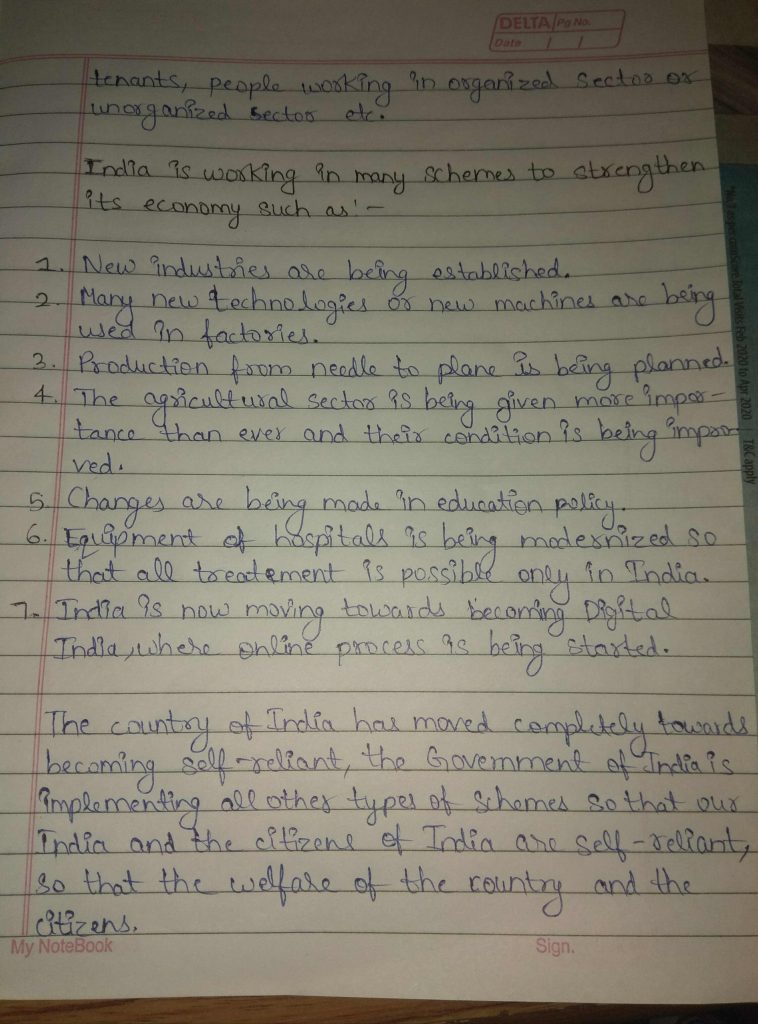 DELTA Pg No.
Date / /
tenants, people working in organized sector or
unorganized sector etc.
India is working in many schemes to strengthen
its economy such as:-
1. New industries are being established.
2. Many new technologies or new machines are being
used in factories.
3. Production from needle to plane is being planned.
4. The agricultural sector is being given more impor-
tance than ever and their condition is being impro-
ved.
5. Changes are being made in education policy.
6. Equipment of hospitals is being modernized so
that all treatement is possible only in India.
7. India is now moving towards becoming Digital
India, where online process is being started.
The country of India has moved completely towards
becoming self-reliant, the Government of India is
implementing all other types of schemes so that our
India and the citizens of India are self-reliant,
so that the welfare of the country and the
citizens.
My NoteBook Sign.
Feb 2020 to Apr 2020 | T&C apply